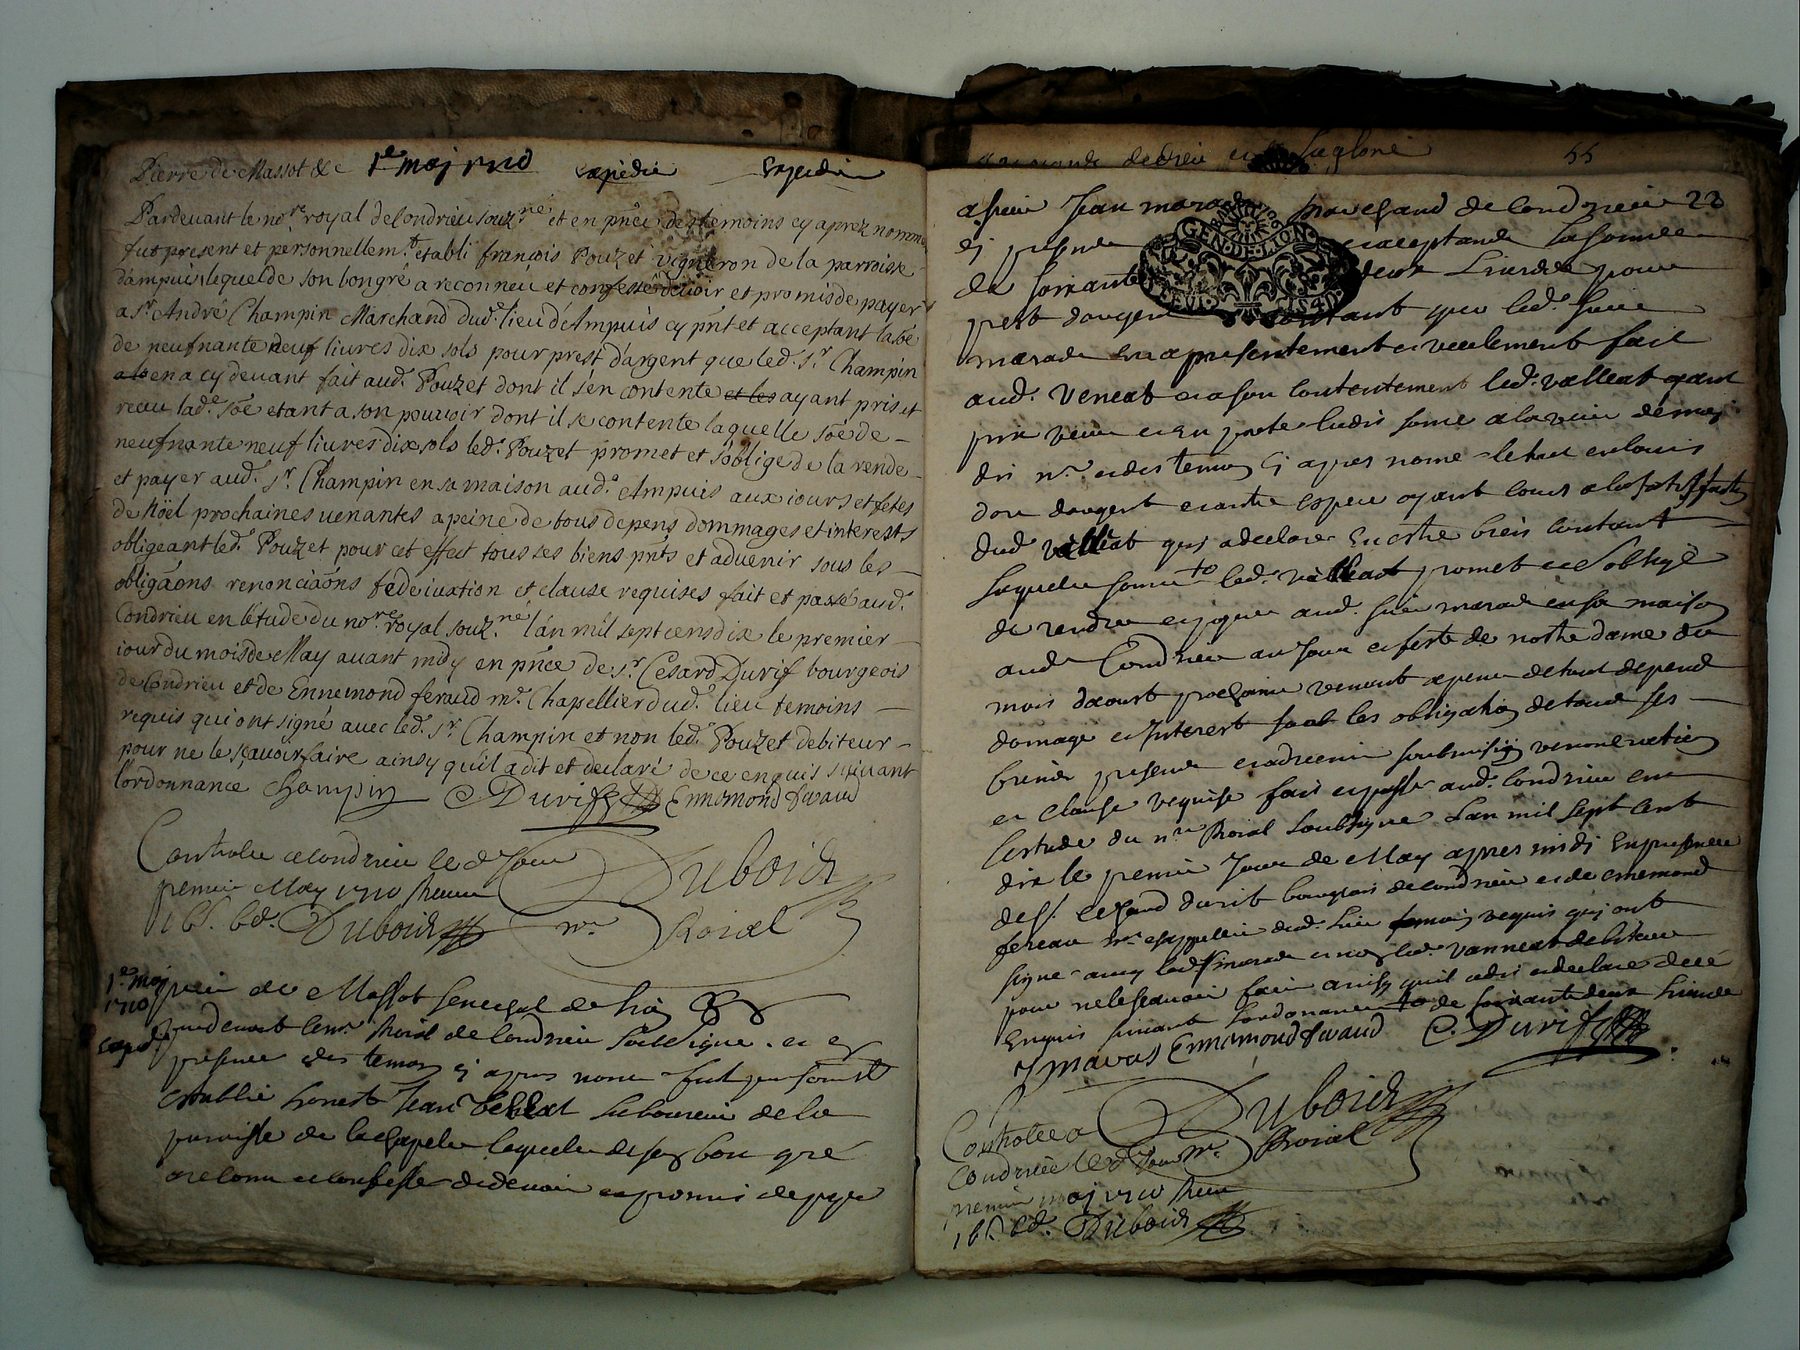 Pierre de Massot &c 1e may 1710 expedie expedie
Pardevant le nore royal de Condrieu souzne et en pnce des temoins cy aprez nommé
fut present et personnellemt etabli françois Pouzet vigneron de la parroisse
dampuis lequel de son bongré a reconneü et confessé devoir et promis de payer
a sr André Champin Marchand dud. lieu d'Ampuis cy pnt et acceptant la sõe
de neufnante neuf livres dix sols pour prest d'argent que led. sr Champin
en a cy devant fait aud. Pouzet dont il s'en contente et les ayant pris et
receu lad. sõe etant a son pouvoir dont il se contente laquelle sõe de
neufnante neuf livres dix sols led. Pouzet promet et s'oblige de la rendre
et payer aud. sr Champin en sa maison aud. Ampuis aux iours et fetes
de Nöel prochaines venantes a peine de tous depens dommages et interests
obligeant led. Pouzet pour cet effect tous ses biens pnts et advenir sous les
obligãons renonciãons et clause requises fait et passé aud.
Condrieu en l'étude du nore royal souzné l'an mil sept cens dix le premier
iour du mois de May avant midy en pnce de sr Cesard Durif bourgeois
de Condrieu et de Ennemond feraud mr Chapellier dud. lieu temoins
requis qui ont signé avec led. sr Champin et non led. Pouzet debiteur
pour ne le sçavoir faire ainsy qu'il a dit et declaré de ce enquis suivant
l'ordonnance Champin C Durif Ennemond feraud
Controlle a Condrieu le d Jour
premier May 1710 Receu
Dubois Dubois
nre Roial
1e may
1710
de Massot senechal de
pardevant le nre Roial de Condrieu soubsigne et en
presence des temoins cy apres nome fut present
estably honest Jean laboureur de la
parroisse de la chapelle lequel de son bon gré
a reconu et confesse de devoir et promis de payer
55
a sieur Jean maras marchand de Condrieu 23
cy present et acceptant la somme
GEN DE LION
de soixante deux Livres pour
prest d'argent contant que led. sieur
maras en a presentement et reellement fait
aud. et a son contentement led. ayant
pris receu et en la veue de moy
dit nre et des temoins cy apres nome
dor dargent et autre espece ayant cours a la satisfaction
dud. qui a declare en estre bien contant
laquelle somme led. promet et s'oblige
de rendre et payer aud. sieur maras en sa maison
aud. Condrieu au Jour et feste de nostre dame du
mois daoust prochaine venant a peine de tout depend
domage et Interest soub les obligation de tous ses
biens present et advenir soubmission renonciation
et clause requise fait et passe aud. Condrieu en
lestude du nre Roial soubsigne Lan mil sept cent
dix le premier Jour de May apres midi en presence
de sr durif bourgeois de Condrieu et de ennemond
feraud mre chappellier dud. lieu temoin requis qui ont
signe avec led. sr maras et non led. debiteur
pour ne le scavoir faire ainsy quil a dit et declare de ce
Enquis suivant Lordonance de soixante deux Livre
J maras Ennemond feraud C. Durif
Dubois
Controlle a nre Roial
Condrieu le d Jour
premier may 1710 Receu
Dubois